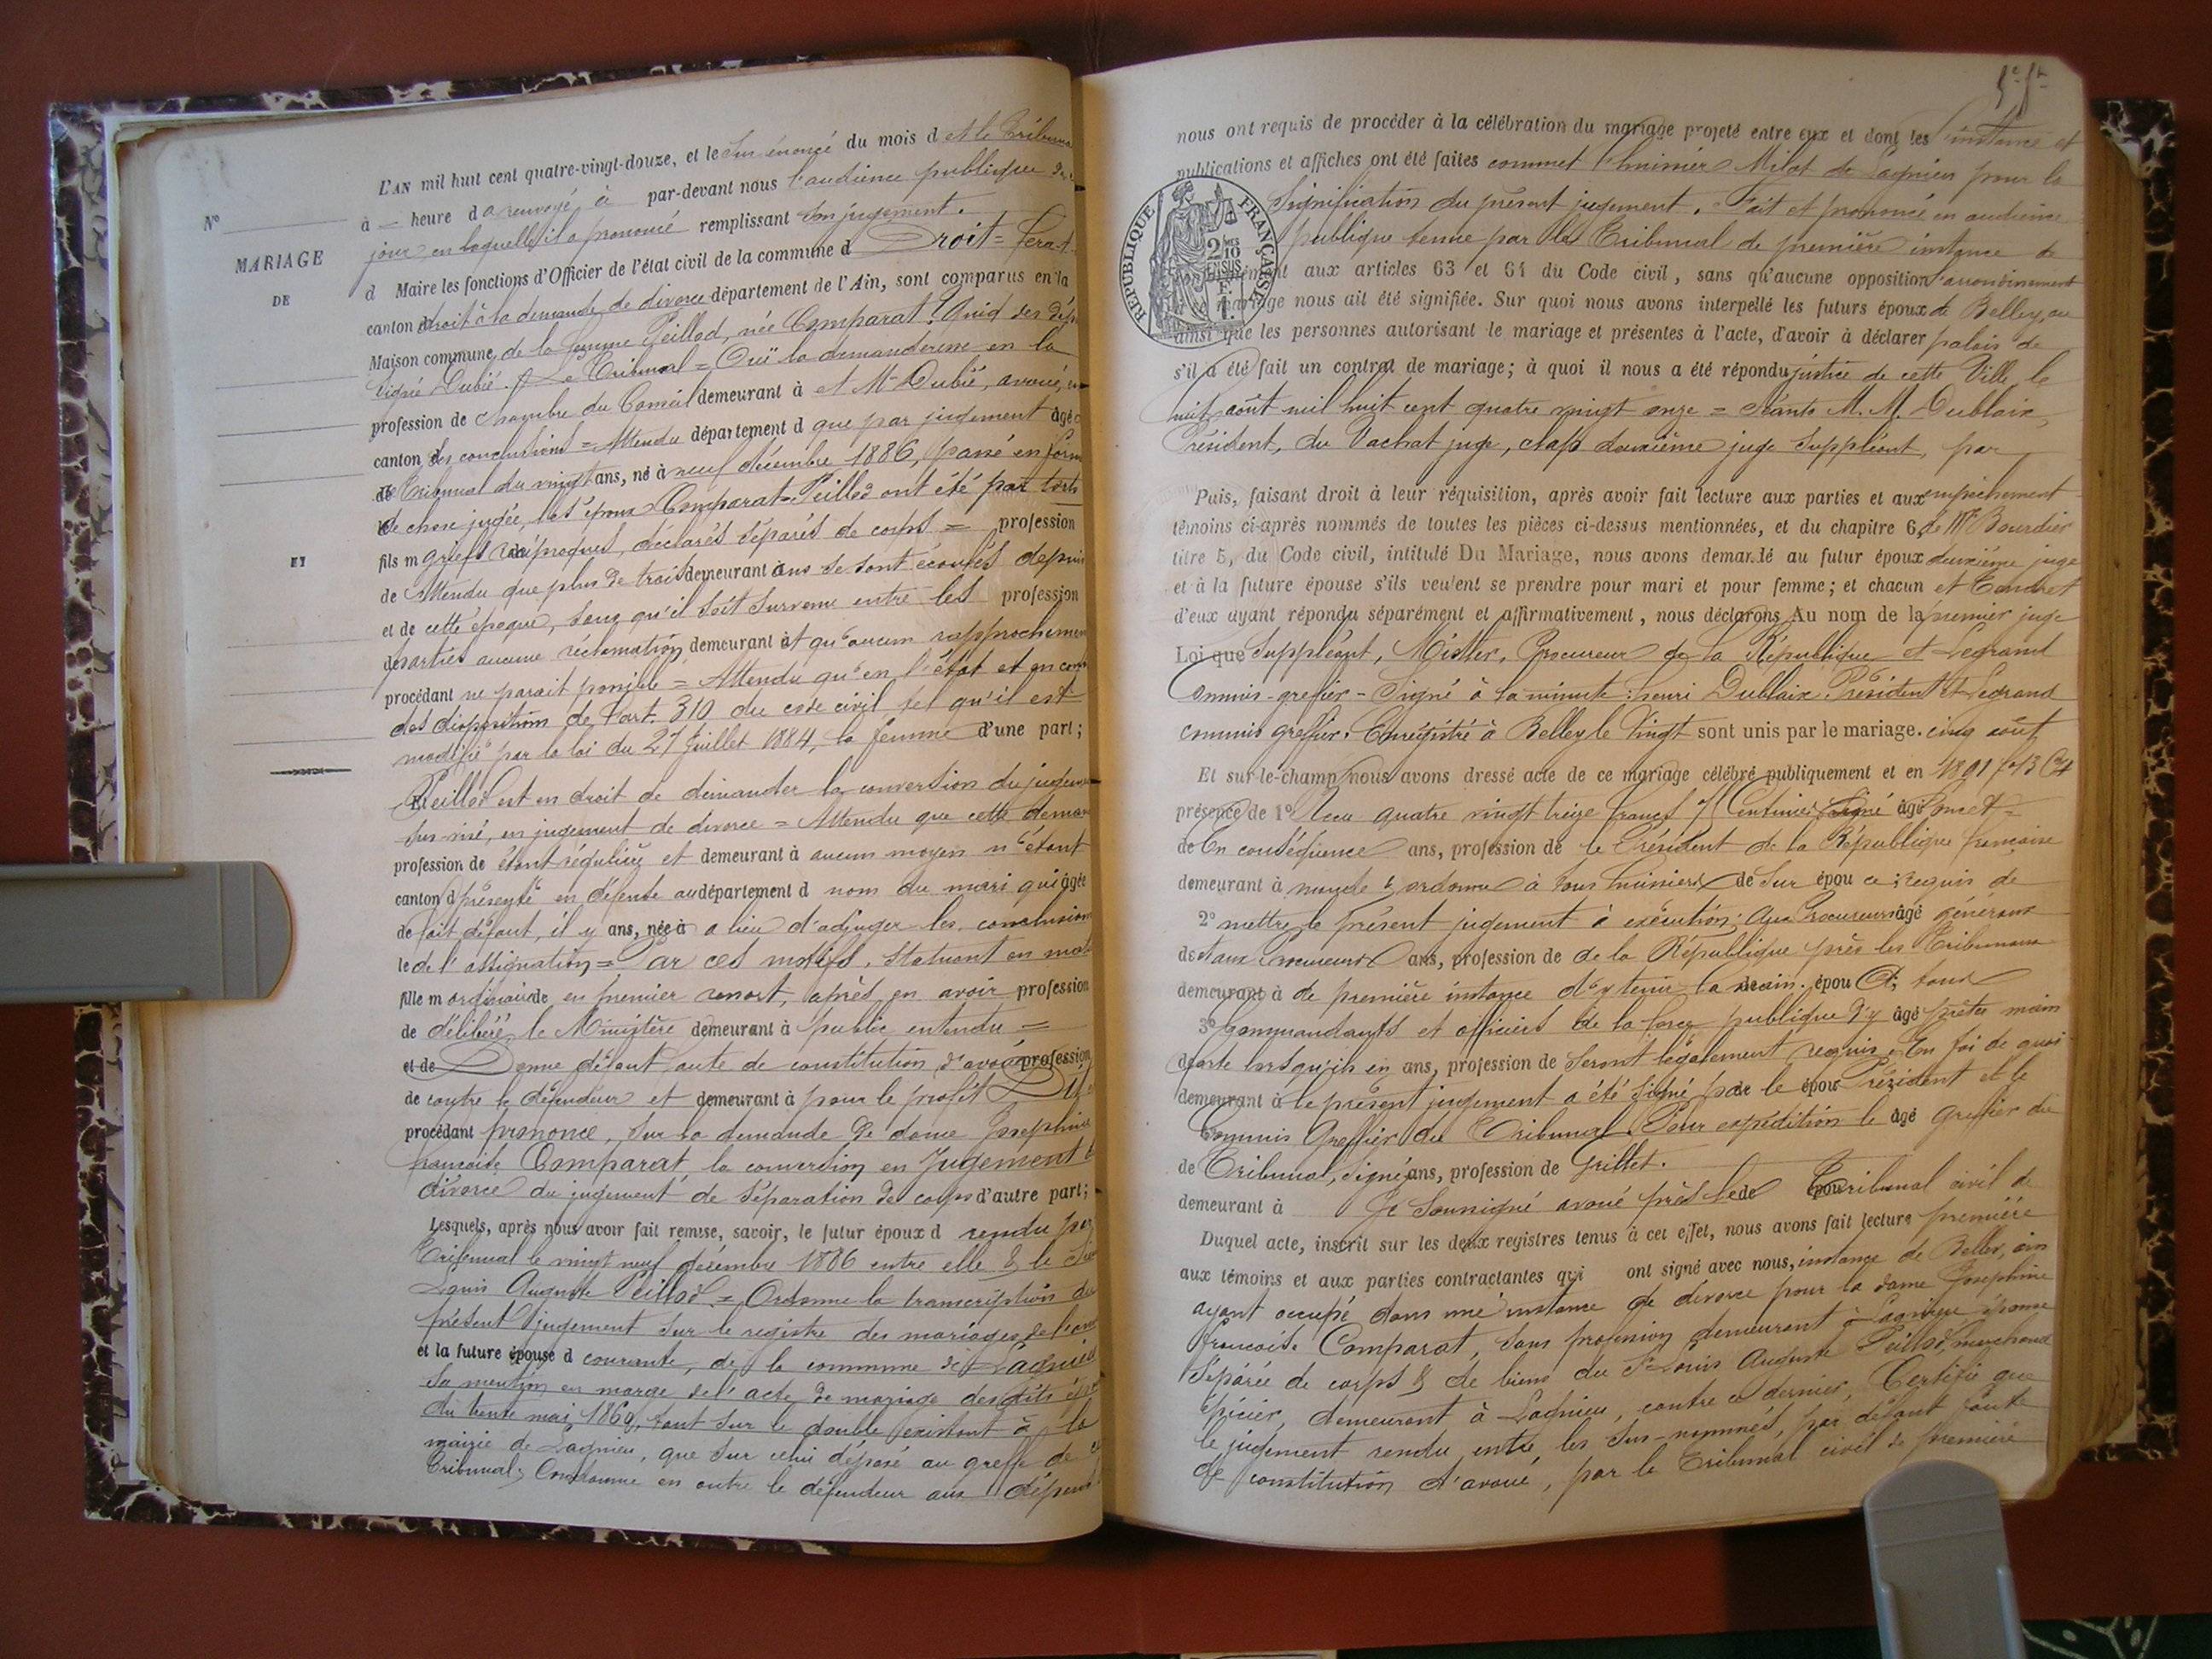 N°
MARIAGE
DE
ET
L'AN mil huit cent quatre-vingt-douze, et le sus énoncé du mois d et le Tribunal
à — heure d a renvoyé à par-devant nous l'audience publique de
jour en laquelle il a prononcé remplissant son jugement.
d Maire les fonctions d'Officier de l'état civil de la commune d Droit = Sera-t
canton d droit à la demande de divorce département de l'Ain, sont comparus en la
Maison commune, de la femme Peillod, née Comparat? Quid des dép
signé Dubié. Le Tribunal = Ouï la demanderesse en la
profession de chambre du Conseil demeurant à et Me Dubié, avoué, en
canton d ses conclusions = Attendu département d que par jugement âgé
de Tribunal du vingt ans, né à neuf décembre 1886, passé en force
le de chose jugée, les époux Comparat-Peillod ont été par torts
fils m griefs réciproques, déclarés séparés de corps = profession
de Attendu que plus de trois demeurant à ans se sont écoulés depuis
et de cette époque, sans qu'il soit survenu entre les profession
de parties aucune réclamation, demeurant à et qu'aucun rapprochement
procédant ne parait possible = Attendu qu'en l'état et en
des dispositions de l'art. 310 du code civil tel qu'il est
modifié par la loi du 27 Juillet 1884, la femme d'une part;
Et Peillod est en droit de demander la conversion du jugement
sus-visé, en jugement de divorce = Attendu que cette demande
profession de étant régulière et demeurant à aucun moyen n'étant
canton d présenté en défense au département d nom du mari qui âgée
de fait défaut, il y ans, née à a lieu d'adjuger les conclusions
le de l'assignation = Par ces motifs, Statuant en
fille m ordinaire de en premier ressort, après en avoir profession
de délibéré, le Ministère demeurant à public entendu =
et de Donne défaut, faute de constitution d'avoué profession
de contre le défendeur et demeurant à pour le profit Dit
procédant prononce, sur la demande de dame Josephine
françoise Comparat, la conversion en Jugement de
divorce du jugement de séparation de corps d'autre part;
Lesquels, après nous avoir fait remise, savoir, le futur époux d rendu par
Tribunal le vingt neuf décembre 1886 entre elle & le Sieur
Louis Auguste Peillod = Ordonne la transcription du
présent jugement sur le registre des mariages de l'année
et la future épouse d courante, de la commune de Lagnieu
Sa mention en marge de l'acte de mariage desdits époux
du trente mai 1869, tant sur le double existant à la
mairie de Lagnieu, que sur celui déposé au greffe de ce
Tribunal; Condamne en outre le défendeur aux dépens.
nous ont requis de procéder à la célébration du mariage projeté entre eux et dont les instance et
publications et affiches ont été faites commet l'huissier Milot de Lagnieu pour la
RÉPUBLIQUE FRANÇAISE
2/10
EN SUS
E.T.
Signification du présent jugement. Fait et prononcé en audience
publique tenue par le Tribunal de première instance de
conformément aux articles 63 et 64 du Code civil, sans qu'aucune opposition l'arrondissement
mariage nous ait été signifiée. Sur quoi nous avons interpellé les futurs époux de Belley, au
ainsi que les personnes autorisant le mariage et présentes à l'acte, d'avoir à déclarer palais de
s'il a été fait un contrat de mariage; à quoi il nous a été répondu justice de cette Ville, le
huit août mil huit cent quatre vingt onze = séants M. M. Dublaix,
Président, du Vachat juge, deuxième juge suppléant, par
Puis, faisant droit à leur réquisition, après avoir fait lecture aux parties et aux empêchement
témoins ci-après nommés de toutes les pièces ci-dessus mentionnées, et du chapitre 6, de Mr Bourdin
titre 5, du Code civil, intitulé Du Mariage, nous avons demandé au futur époux deuxième juge
et à la future épouse s'ils veulent se prendre pour mari et pour femme; et chacun et Tendret
d'eux ayant répondu séparément et affirmativement, nous déclarons Au nom de la premier juge
Loi que Suppléant, Mister, Procureur de la République et Legrand
Commis-greffier - Signé à la minute: henri Dublaix Président et Legrand
commis greffier. Enregistré à Belley le Vingt sont unis par le mariage. cinq août
Et sur-le-champ nous avons dressé acte de ce mariage célébré publiquement et en 1891 fo 13 C4
présence de 1° Reçu quatre vingt treize francs Centimes Signé âgé Poncet =
de En conséquence ans, profession de le Président de la République française
demeurant à mande & ordonne à tous huissiers de sur épou ce requis de
2° mettre le présent jugement à exécution; aux Procureurs âgé généraux
de et aux Procureurs ans, profession de de la République près les Tribunaux
demeurant à de première instance d'y tenir la main. épou Et tous
3° Commandants et officiers de la force publique d'y âgé prêter main
de forte lorsqu'ils en ans, profession de seront légalement requis. En foi de quoi
demeurant à le présent jugement a été signé par le épou Président et le
Commis Greffier du Tribunal. Pour expédition le âgé greffier du
de Tribunal, signé ans, profession de Grillet.
demeurant à Je Soussigné avoué près le de épou Tribunal civil de
Duquel acte, inscrit sur les deux registres tenus à cet effet, nous avons fait lecture première
aux témoins et aux parties contractantes qui ont signé avec nous, instance de Belley, ain
ayant occupé dans une instance de divorce pour la dame Josephine
françoise Comparat, sans profession demeurant à Lagnieu épouse
séparée de corps & de biens du Sr Louis Auguste Peillod, marchand
épicier, demeurant à Lagnieu, contre ce dernier, Certifie que
le jugement rendu entre les sus-nommés, par défaut faute
de constitution d'avoué, par le Tribunal civil de première